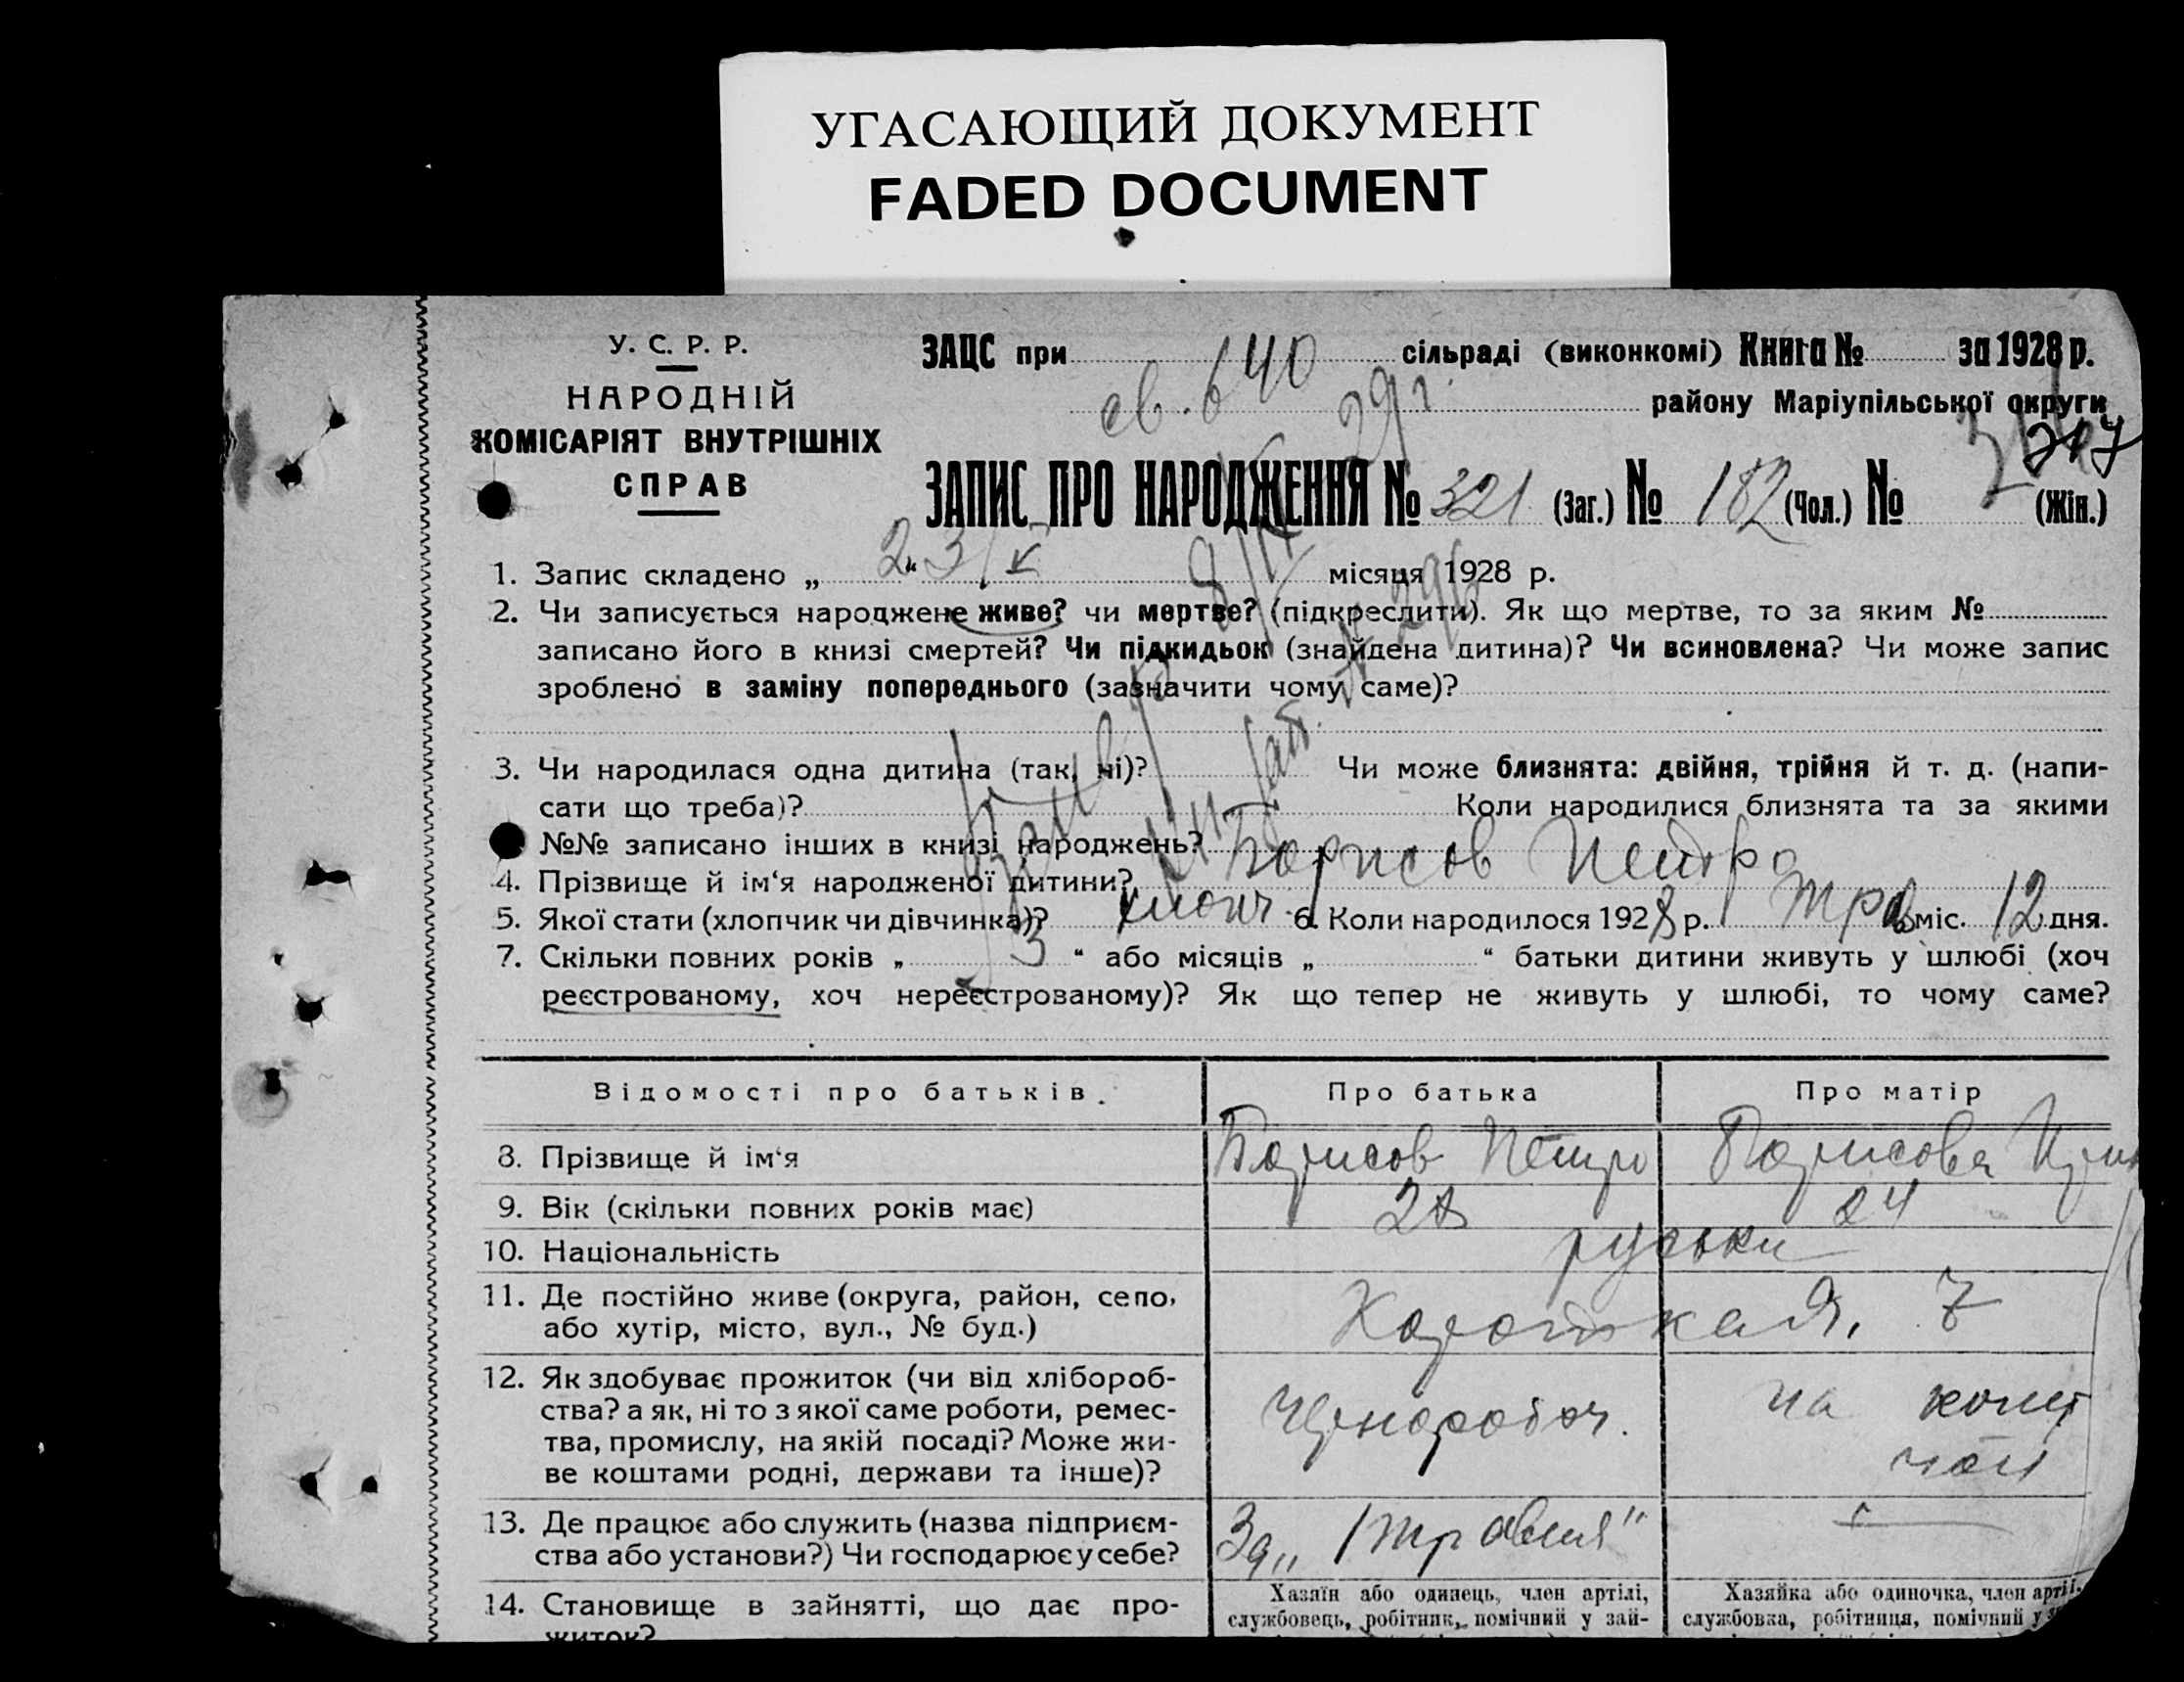 УГАСАЮЩИЙ ДОКУМЕНТ
FADED DOCUMENT
У. С. Р. Р.
НАРОДНІЙ
КОМІСАРІЯТ ВНУТРІШНІХ
СПРАВ
ЗАЦС при сільраді (виконкомі) Книга № за 1928 р.
св. 640
29 г.
району Маріупільської округи
ЗАПИС ПРО НАРОДЖЕННЯ № 321 (Заг.) № 182 (Чол.) № (Жін.)
1. Запис складено „ 23/V “ місяця 1928 р.
2. Чи записується народжене живе? чи мертве? (підкреслити). Як що мертве, то за яким №
записано його в книзі смертей? Чи підкидьок (знайдена дитина)? Чи всиновлена? Чи може запис
зроблено в заміну попереднього (зазначити чому саме)?
3. Чи народилася одна дитина (так, ні)? Чи може близнята: двійня, трійня й т. д. (напи-
сати що треба)? Коли народилися близнята та за якими
№№ записано інших в книзі народжень?
4. Прізвище й ім‘я народженої дитини? Борисов Петро
5. Якої стати (хлопчик чи дівчинка)? хлопч 6. Коли народилося 1928 р. трав міс. 12 дня.
7. Скільки повних років „ 3 “ або місяців „ “ батьки дитини живуть у шлюбі (хоч
реєстрованому, хоч нереєстрованому)? Як що тепер не живуть у шлюбі, то чому саме?
Відомості про батьків. Про батька Про матір
8. Прізвище й ім‘я Борисов Петро Борисова
9. Вік (скільки повних років має) 28 24
10. Національність руськи
11. Де постійно живе (округа, район, село,
або хутір, місто, вул., № буд.) Короткая, 7
12. Як здобуває прожиток (чи від хлібороб-
ства? а як, ні то з якої саме роботи, ремес-
тва, промислу, на якій посаді? Може жи-
ве коштами родні, держави та інше)?
Чернороботч. на кошт
чол
13. Де працює або служить (назва підприєм-
ства або установи?) Чи господарює у себе?
Зд „ 1 травня“ —
14. Становище в зайнятті, що дає про-
житок?
Хазяїн або одинець, член артілі,
службовець, робітник, помічний у зай-
Хазяйка або одиночка, член артіл.
службовка, робітниця, помічний у